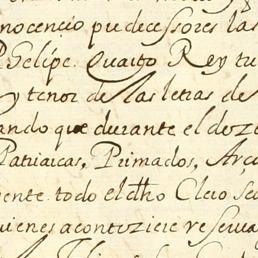 nocencio predecessores las
Phelipe Quarto Rey tu
y tenor de las letras de
ando que durante el doze
Patriarcas, Primados, Arço
ente todo el dho Clero Sec
uienes acontoziere reserua